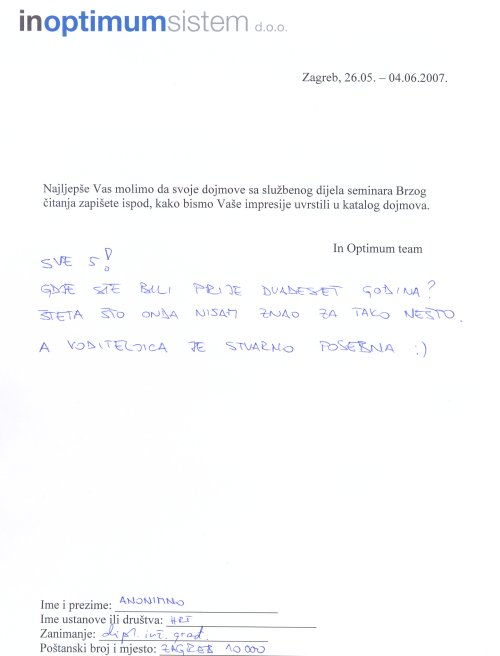 inoptimumsistem d.o.o.
Zagreb, 26.05. – 04.06.2007.
Najljepše Vas molimo da svoje dojmove sa službenog dijela seminara Brzog
čitanja zapišete ispod, kako bismo Vaše impresije uvrstili u katalog dojmova.
In Optimum team
SVE 5!
GDJE STE BILI PRIJE DVADESET GODINA?
ŠTETA ŠTO ONDA NISAM ZNAO ZA TAKO NEŠTO.
A VODITELJICA JE STVARNO POSEBNA :)
Ime i prezime: ANONIMNO
Ime ustanove ili društva: HRT
Zanimanje: dipl. inž. građ.
Poštanski broj i mjesto: ZAGREB 10000